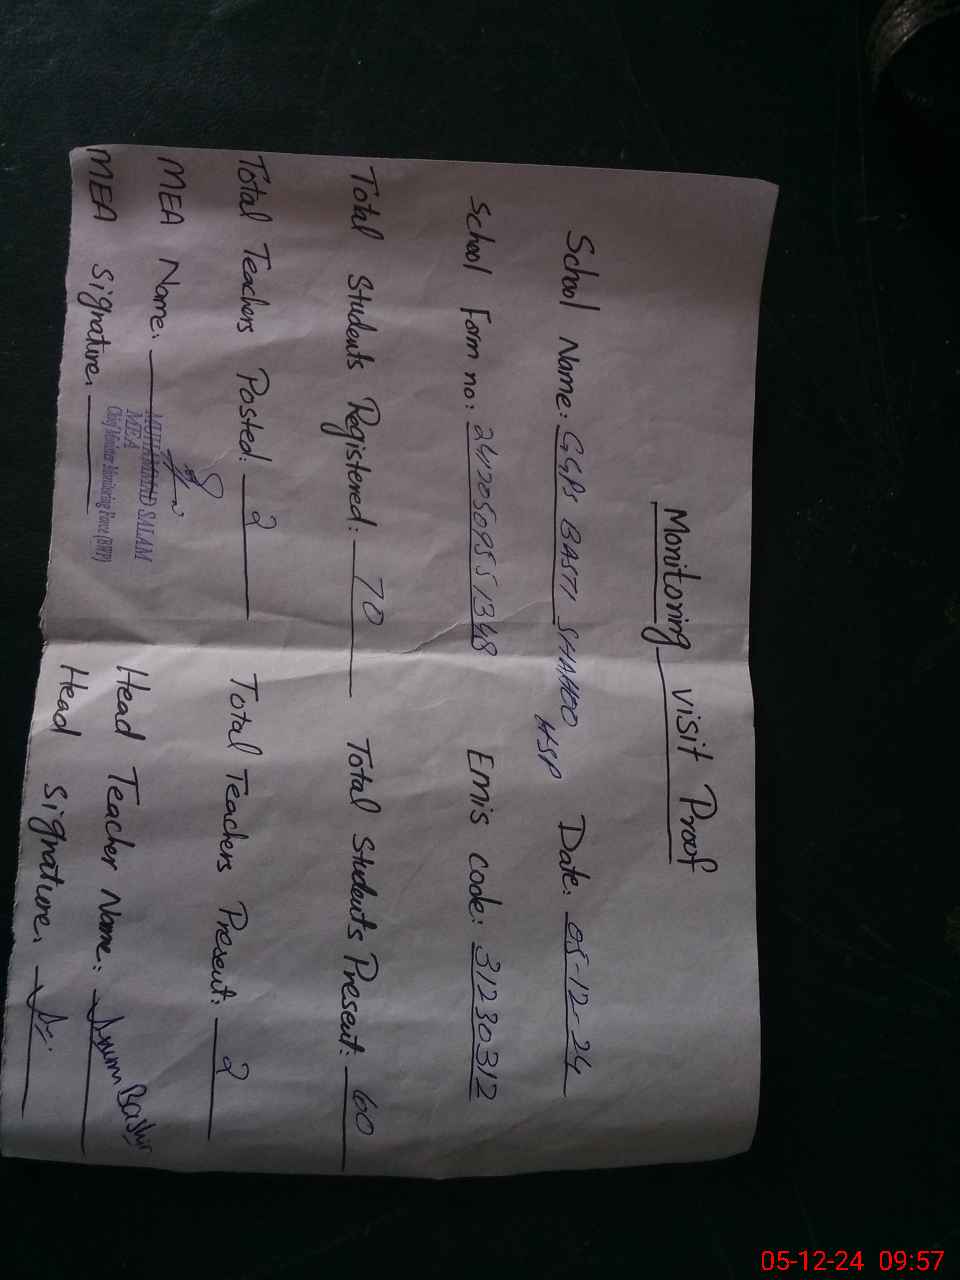 Monitoring visit Proof
School Name: GGPS BASTI SHAHOO HSP Date: 05-12-24
School Form no: 24120509551348 Emis code: 31230312
Total Students Registered: 70 Total Students Present: 60
Total Teachers Posted: 2 Total Teachers Present: 2
MEA Name: MUHAMMAD SALAM Head Teacher Name: Bashir
MEA
Chief Minister Monitoring Force (BWP)
MEA Signature: Head Signature:
05-12-24 09:57